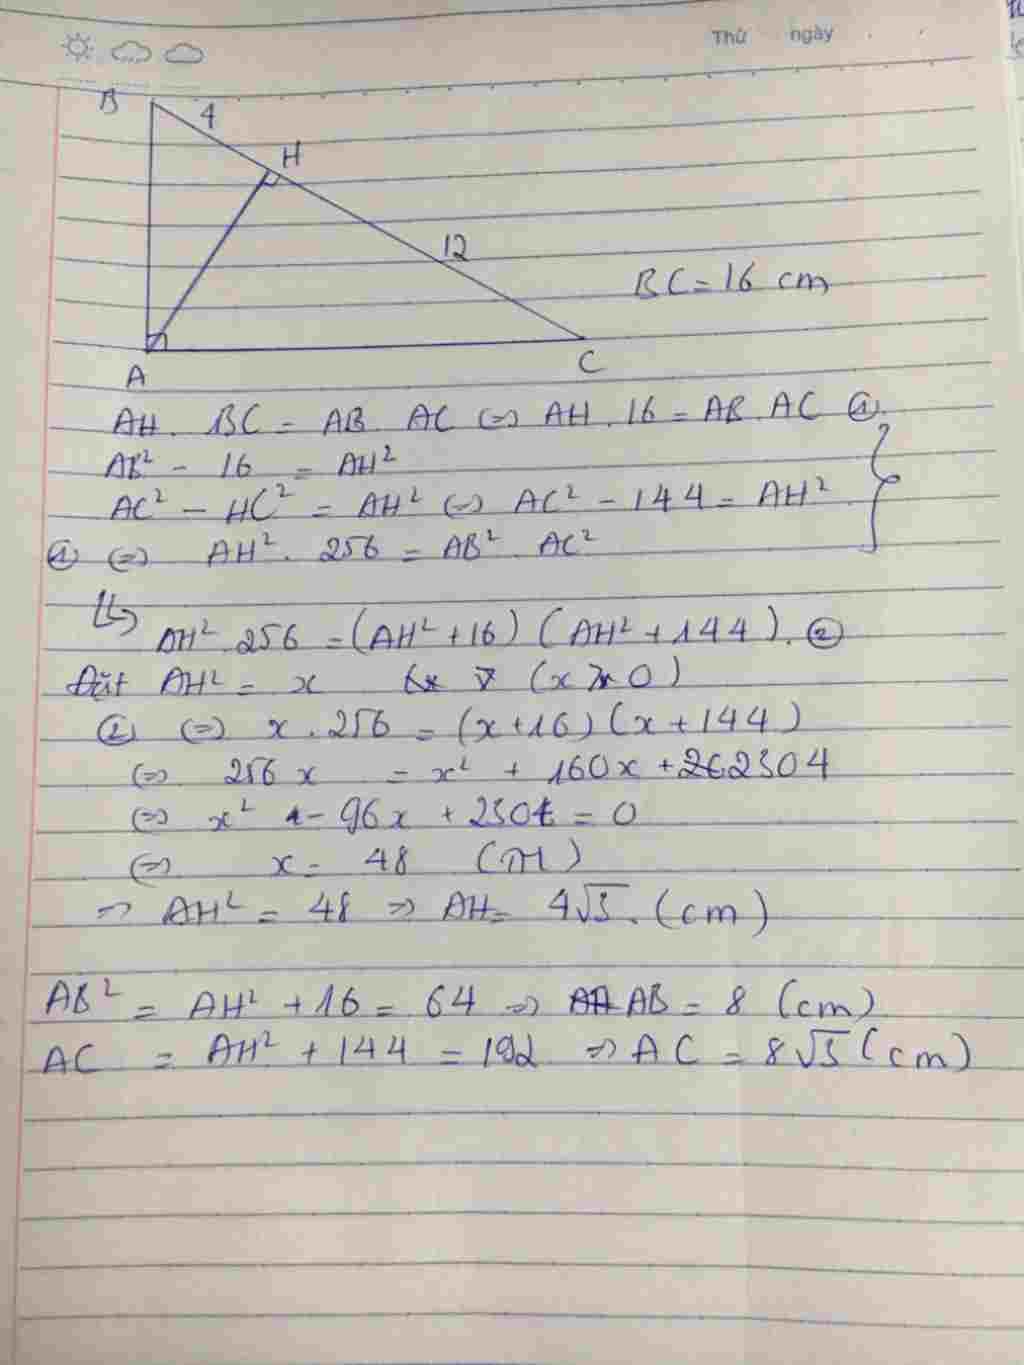 Thứ ngày
B
4
H
12
BC = 16 cm
A
C
AH . BC = AB . AC (=) AH . 16 = AB . AC ①
AB² - 16 = AH²
AC² - HC² = AH² (=) AC² - 144 = AH²
① (=) AH² . 256 = AB² . AC²
AH² . 256 = (AH² + 16) (AH² + 144) . ②
Đặt AH² = x (x > 0)
② (=) x . 256 = (x + 16) (x + 144)
(=) 256 x = x² + 160x + 2304
(=) x² - 96x + 2304 = 0
(=) x = 48 (TM)
=> AH² = 48 => AH = 4√3 . (cm)
AB² = AH² + 16 = 64 => AB = 8 (cm)
AC = AH² + 144 = 192 => AC = 8√3 (cm)